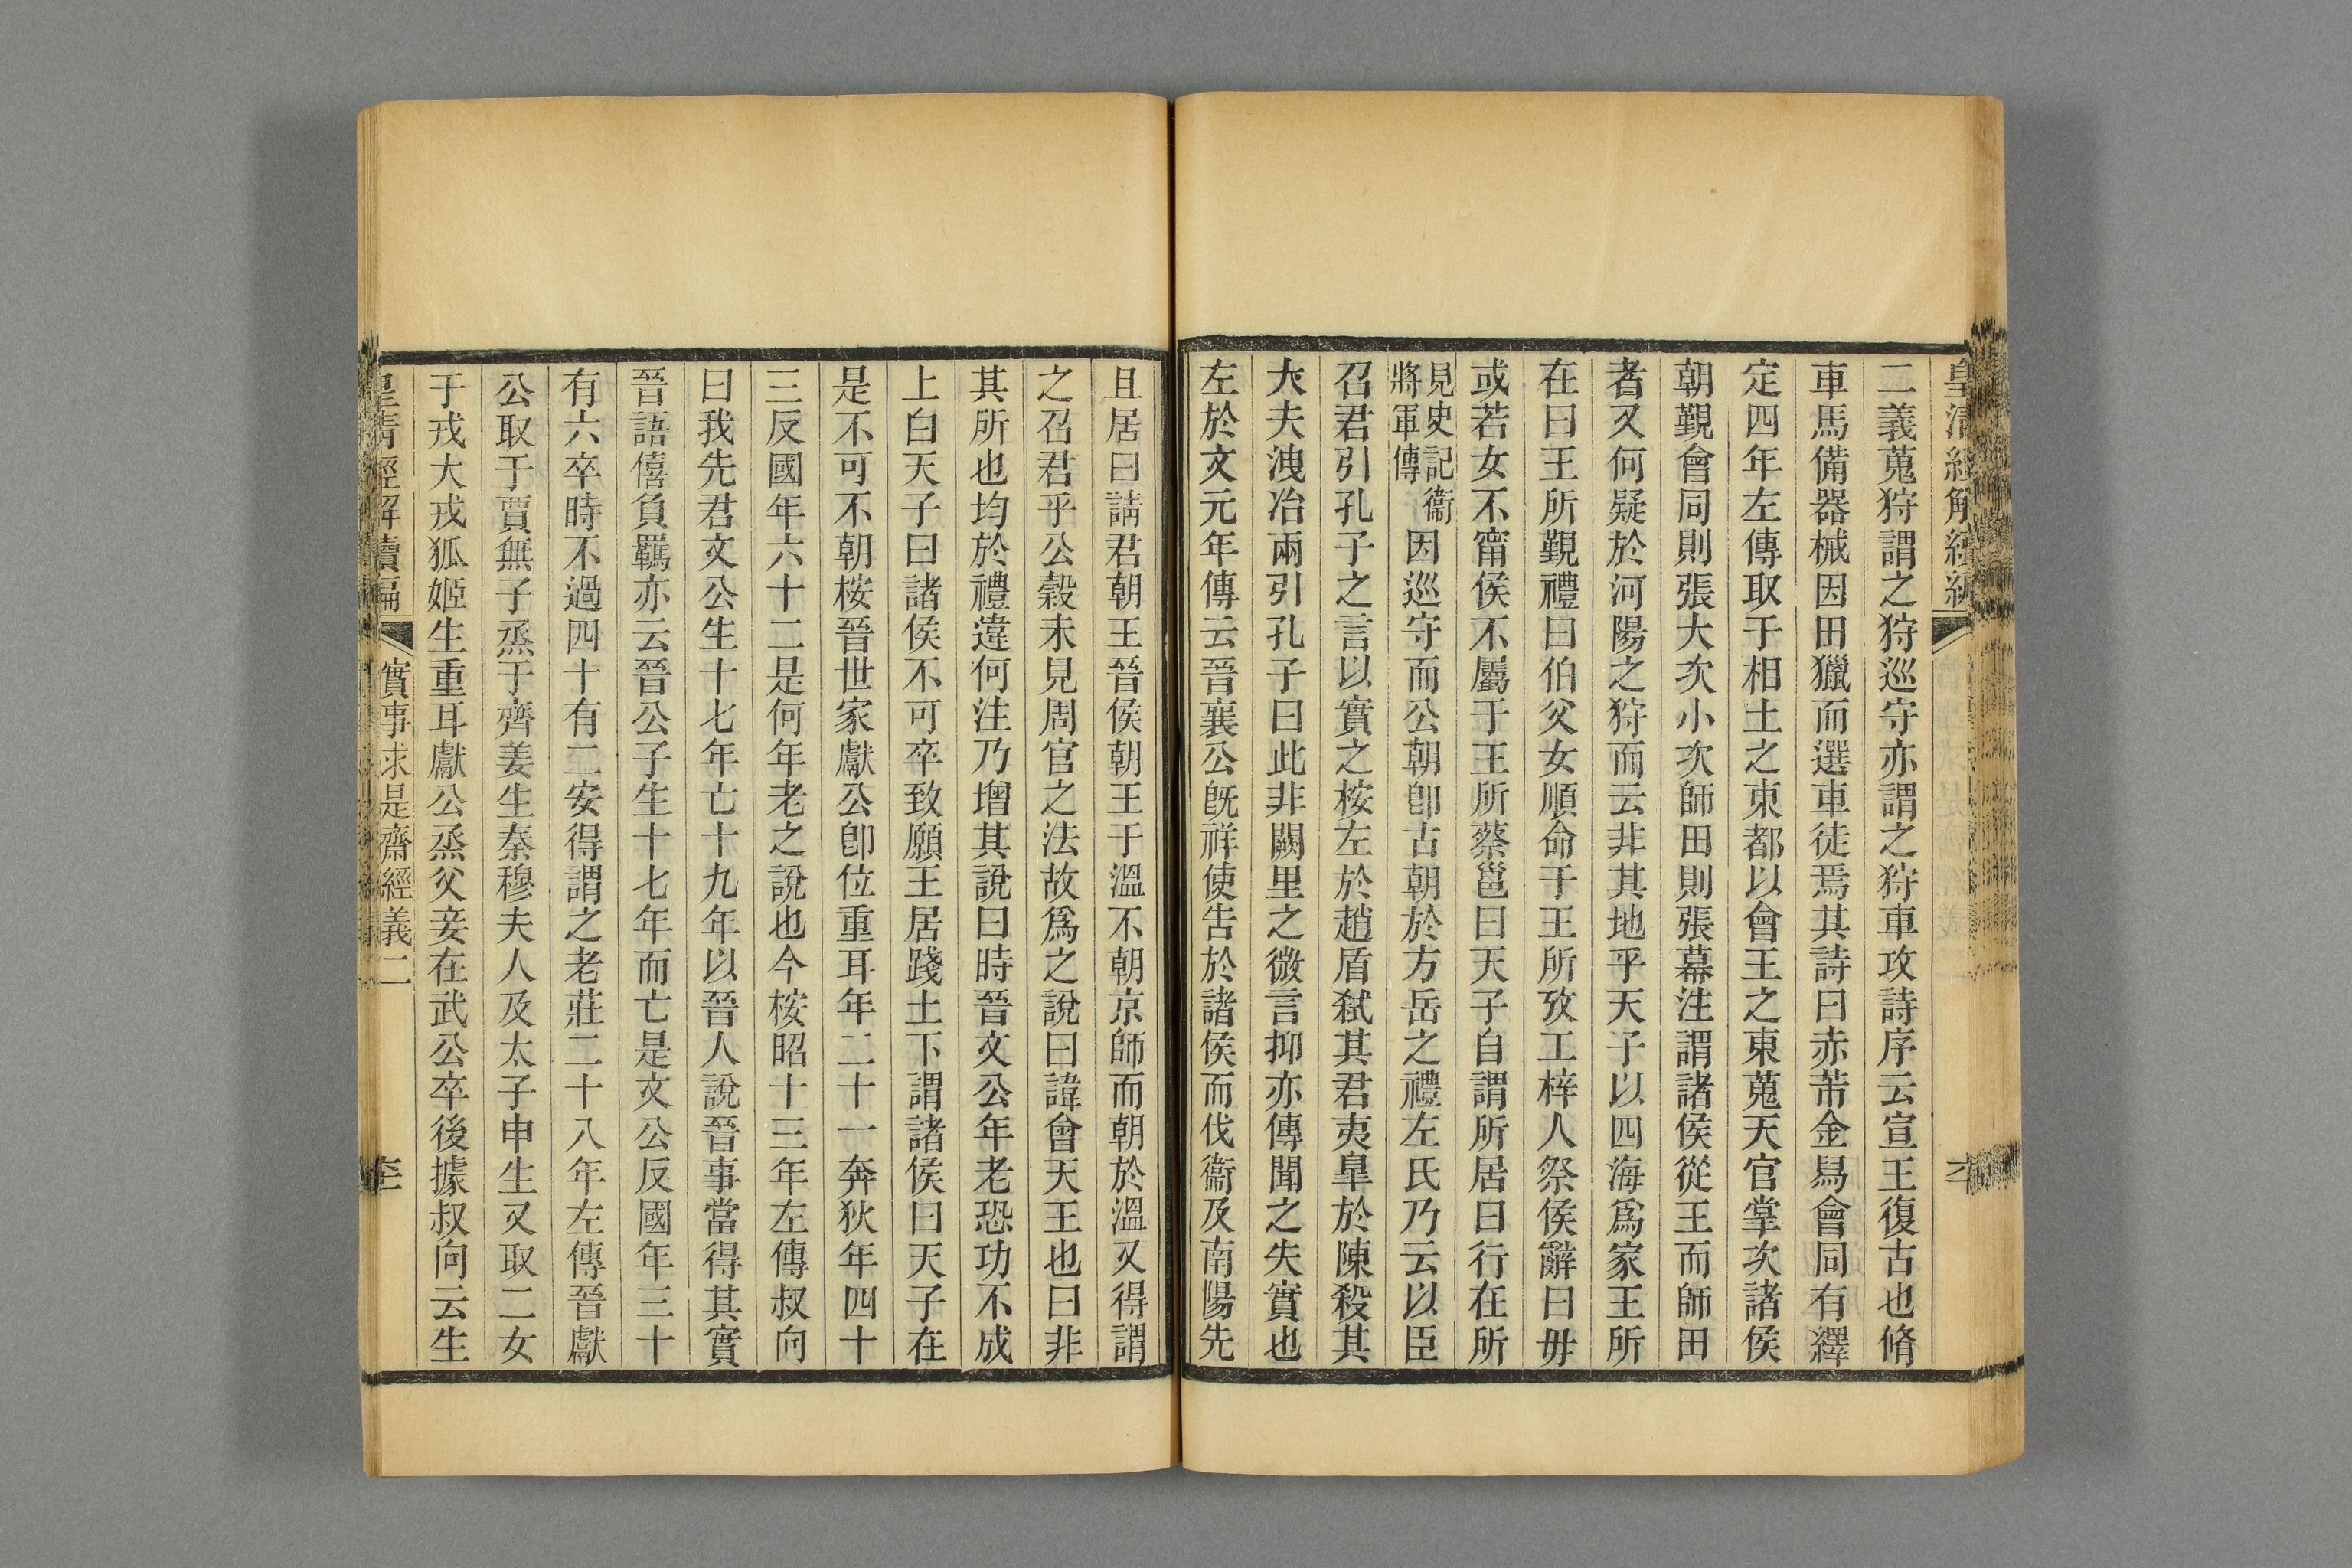 皇清經解續編
二義蒐狩謂之狩巡守亦謂之狩車攻詩序云宣王復古也脩
車馬備器械因田獵而選車徒焉其詩曰赤芾金舄會同有繹
定四年左傳取于相土之東都以會王之東蒐天官掌次諸侯
朝覲會同則張大次小次師田則張幕注謂諸侯從王而師田
者又何疑於河陽之狩而云非其地乎天子以四海爲家王所
在曰王所覲禮曰伯父女順命于王所攷工梓人祭侯辭曰毋
或若女不甯侯不屬于王所蔡邕曰天子自謂所居曰行在所
見史記衞
將軍傳
因巡守而公朝卽古朝於方岳之禮左氏乃云以臣
召君引孔子之言以實之桉左於趙盾弒其君夷皐於陳殺其
大夫洩冶兩引孔子曰此非闕里之微言抑亦傳聞之失實也
左於文元年傳云晉襄公旣祥使告於諸侯而伐衞及南陽先
且居曰請君朝王晉侯朝王于溫不朝京師而朝於溫又得謂
之召君乎公穀未見周官之法故爲之說曰諱會天王也曰非
其所也均於禮違何注乃增其說曰時晉文公年老恐功不成
上白天子曰諸侯不可卒致願王居踐土下謂諸侯曰天子在
是不可不朝桉晉世家獻公卽位重耳年二十一奔狄年四十
三反國年六十二是何年老之說也今桉昭十三年左傳叔向
曰我先君文公生十七年亡十九年以晉人說晉事當得其實
晉語僖負羈亦云晉公子生十七年而亡是文公反國年三十
有六卒時不過四十有二安得謂之老莊二十八年左傳晉獻
公取于賈無子烝于齊姜生秦穆夫人及太子申生又取二女
于戎大戎狐姬生重耳獻公烝父妾在武公卒後據叔向云生
皇清經解續編
實事求是齋經義二